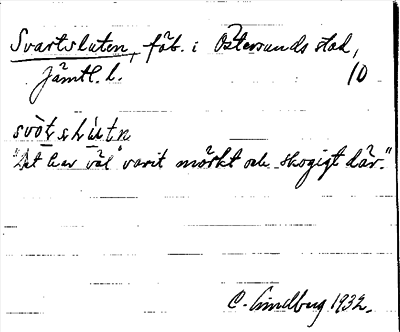 Svartsluten, fäb. i Östersunds stad,
Jämtl. l.
10
"Det har väl varit mörkt och skogigt där."
C. Lindberg 1932.